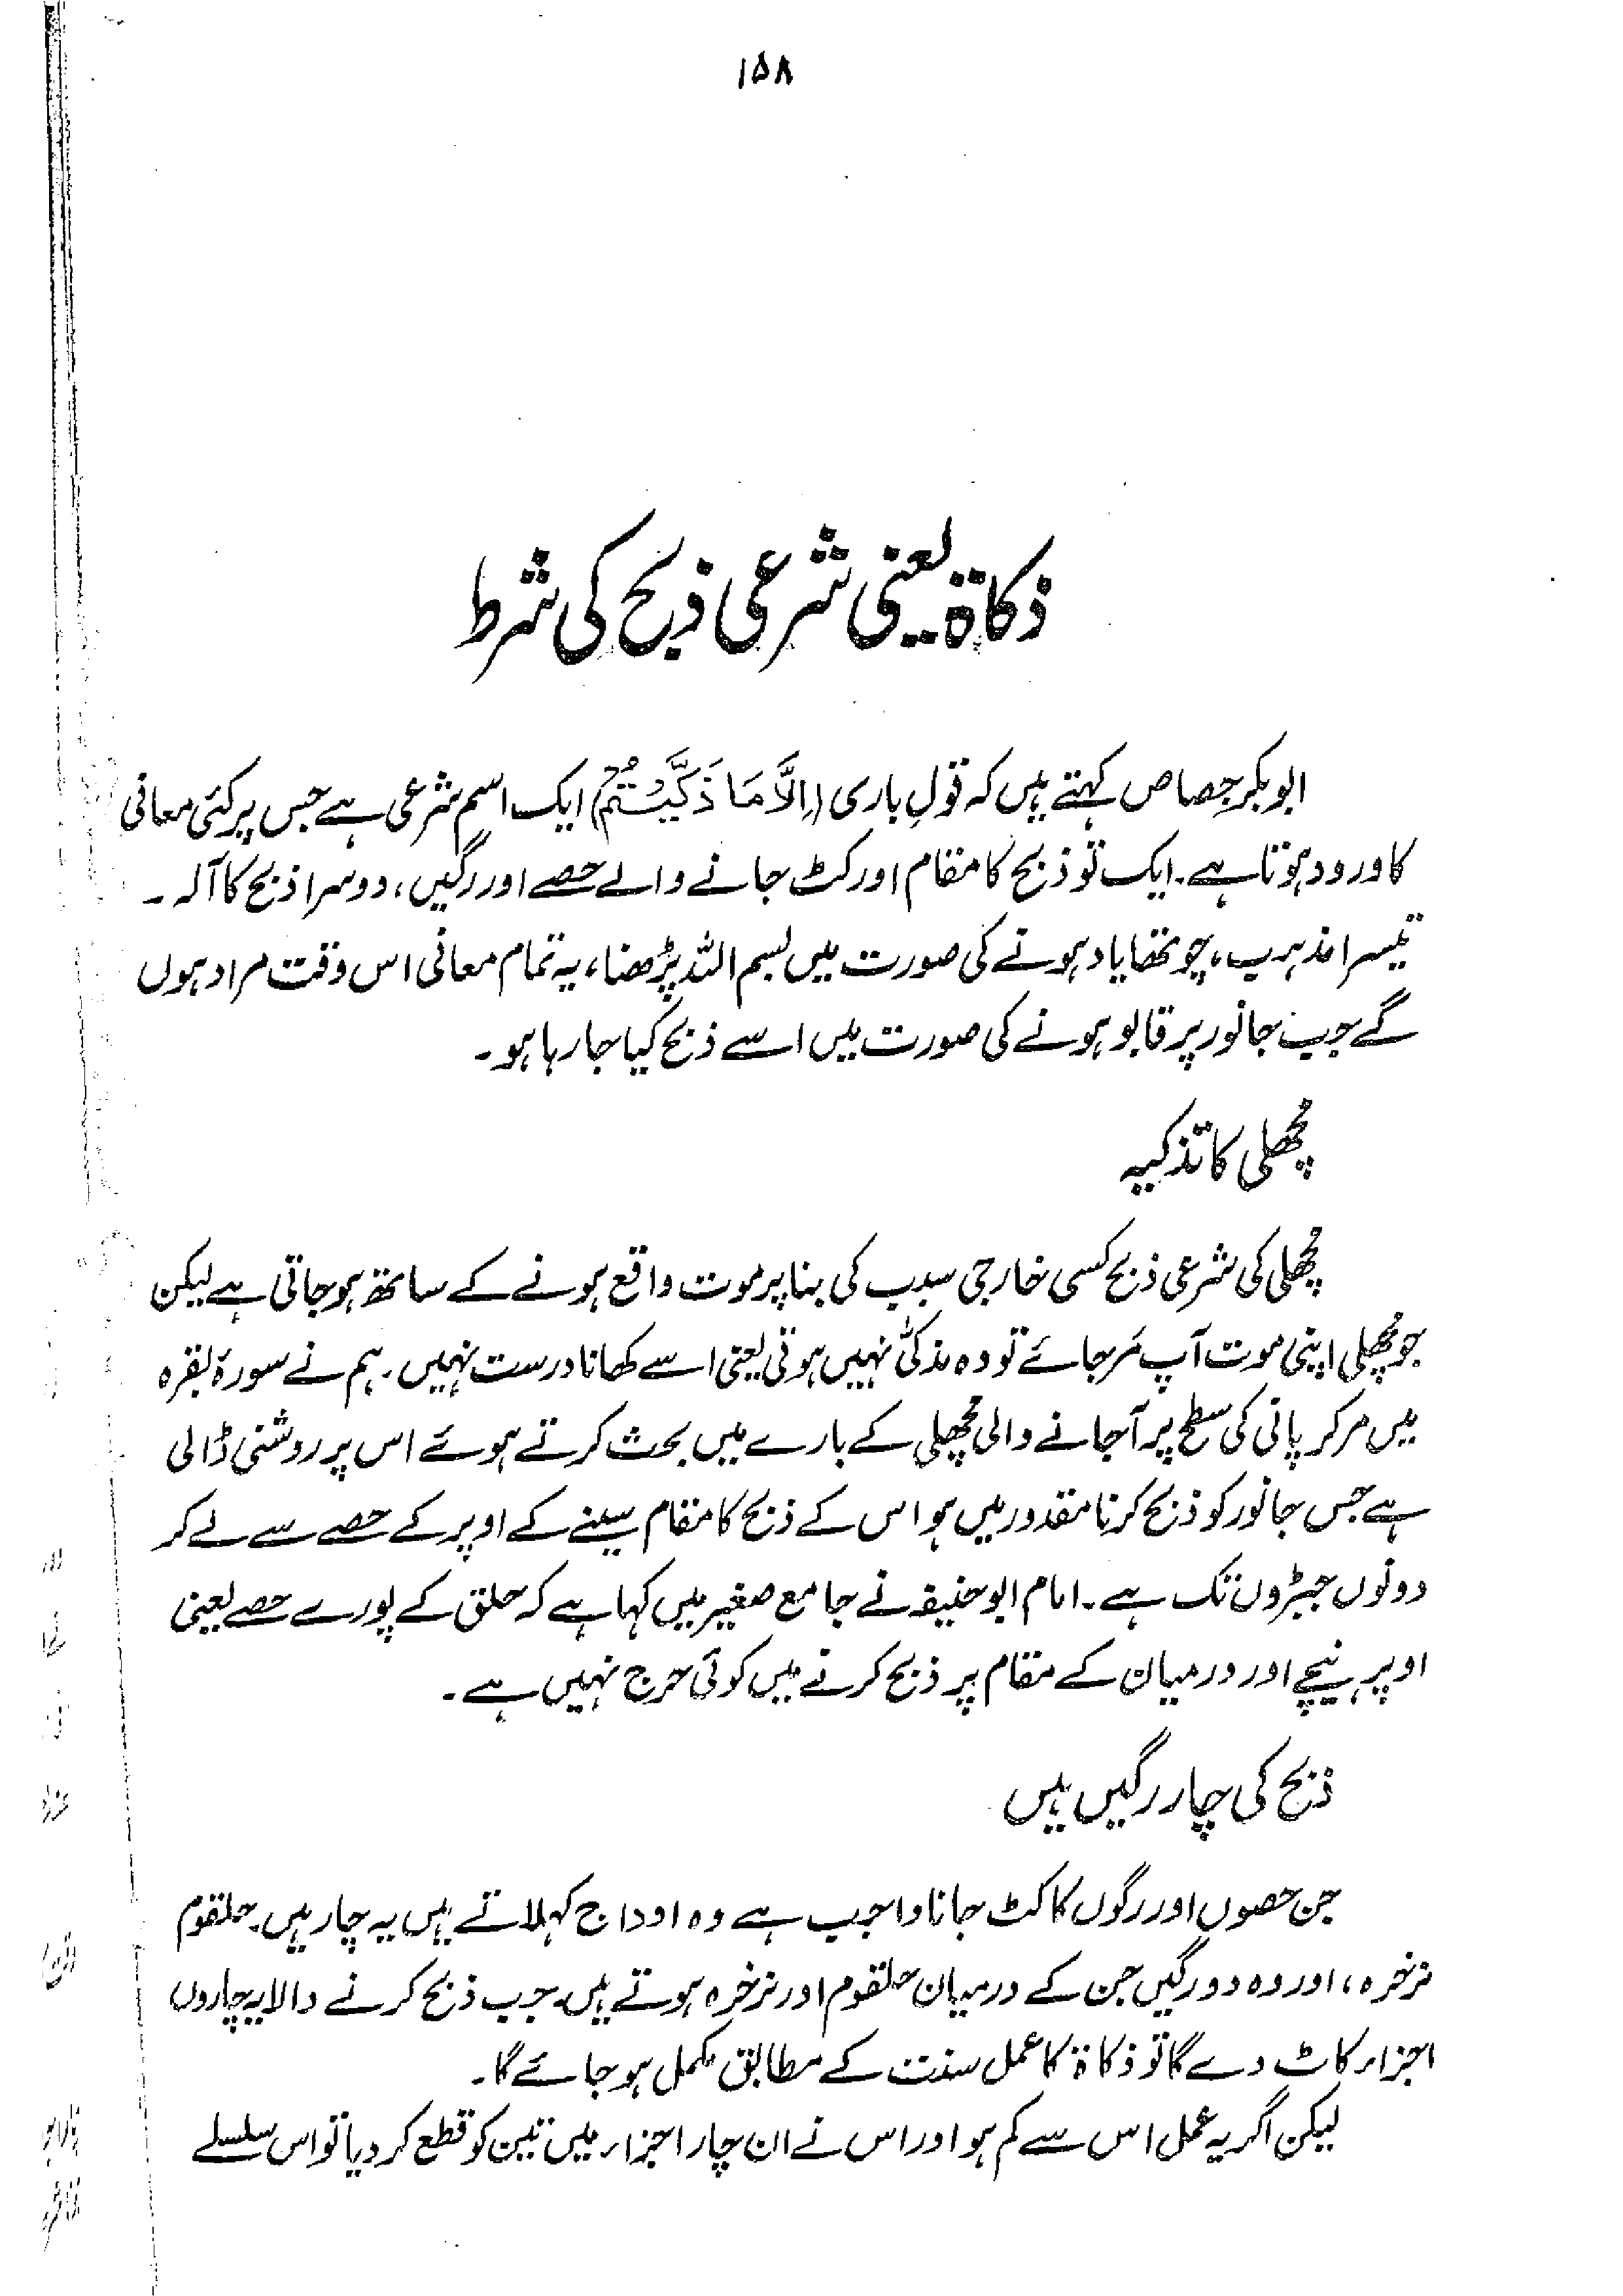 ۱۵۸
ذکاۃ یعنی شرعی ذبح کی شرط
ابوبکر جصاص کہتے ہیں کہ قولِ باری (اِلَّا مَا ذَکَّیْتُمْ) ایک اسم شرعی ہے جس پر کئی معانی
کا ورود ہوتا ہے۔ ایک تو ذبح کا مقام اور کٹ جانے والے حصے اور رگیں، دوسرا ذبح کا آلہ۔
تیسرا مذہب، چوتھا یاد ہونے کی صورت میں بسم اللہ پڑھنا، یہ تمام معانی اس وقت مراد ہوں
گے جب جانور پر قابو ہونے کی صورت میں اسے ذبح کیا جا رہا ہو۔
مچھلی کا تذکیہ
مچھلی کی شرعی ذبح کسی خارجی سبب کی بنا پر موت واقع ہونے کے ساتھ ہو جاتی ہے لیکن
جو مچھلی اپنی موت آپ مَر جائے تو وہ مذکّٰی نہیں ہوتی یعنی اسے کھانا درست نہیں۔ ہم نے سورۂ بقرہ
میں مر کر پانی کی سطح پر آ جانے والی مچھلی کے بارے میں بحث کرتے ہوئے اس پر روشنی ڈالی
ہے جس جانور کو ذبح کرنا مقدور میں ہو اس کے ذبح کا مقام سینے کے اوپر کے حصے سے لے کر
دونوں جبڑوں تک ہے۔ امام ابو حنیفہ نے جامع صغیر میں کہا ہے کہ حلق کے پورے حصے یعنی
اوپر، نیچے اور درمیان کے مقام پر ذبح کرنے میں کوئی حرج نہیں ہے۔
ذبح کی چار رگیں ہیں
جن حصوں اور رگوں کا کٹ جانا واجب ہے وہ اوداج کہلاتے ہیں یہ چار ہیں۔ حلقوم
نرخرہ، اور وہ دو رگیں جن کے درمیان حلقوم اور نرخرہ ہوتے ہیں۔ جب ذبح کرنے والا یہ چاروں
اجزاء کاٹ دے گا تو ذکاۃ کا عمل سنت کے مطابق مکمل ہو جائے گا۔
لیکن اگر یہ عمل اس سے کم ہو اور اس نے ان چار اجزاء میں تین کو قطع کر دیا تو اس سلسلے